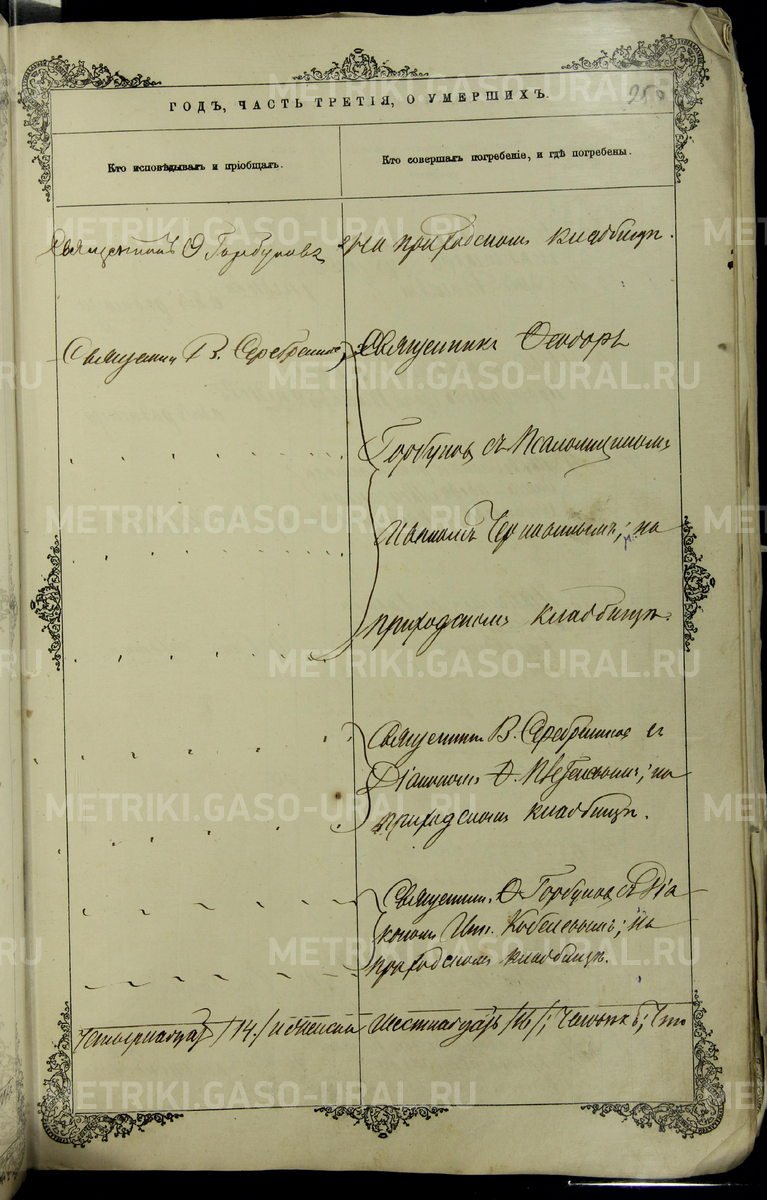 ГОДЪ, ЧАСТЬ ТРЕТІЯ, О УМЕРШИХЪ.
Кто исповѣдывалъ и пріобщалъ.
Кто совершалъ погребеніе, и гдѣ погребены.
Священникъ Ѳ Горбуновъ
на приходскомъ кладбищѣ.
Священник В. Серебренников
Священникъ Ѳеодоръ
Горбунов съ Псаломщикомъ
на
приходскомъ кладбищѣ.
Священник В. Серебренников съ
Діакономъ Ѳ. на
приходскомъ кладбищѣ.
Священник Ѳ Горбунов съ Діа
кономъ Кобелевымъ; на
приходскомъ кладбищѣ.
/14/ и женска Шестнадцать /16/ Человѣкъ; Что
METRIKI.GASO-URAL.RU